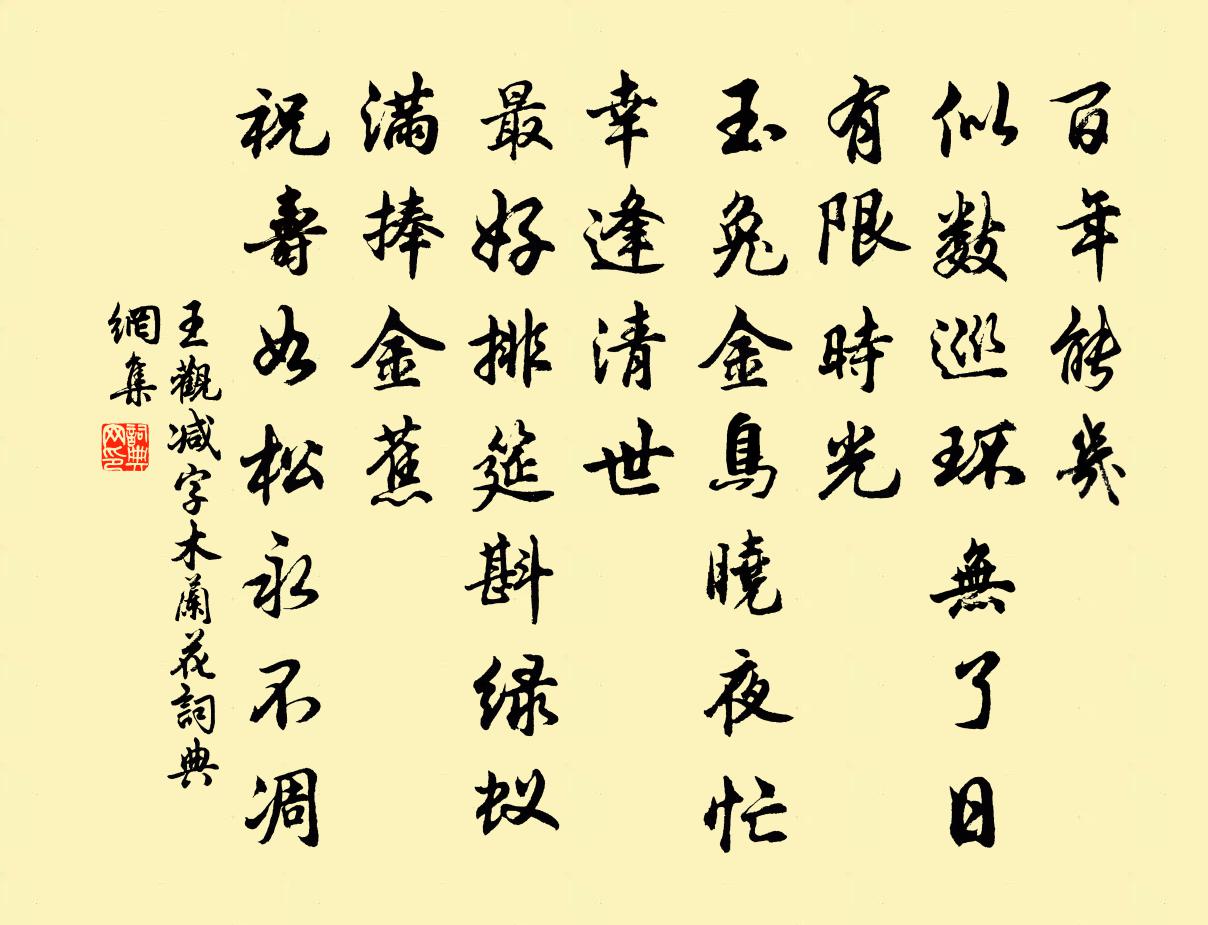 百年能幾
似數巡环無了日
有限時光
玉兔金烏曉夜忙
幸逢清世
最好排筵斟绿蚁
滿捧金蕉
祝壽如松永不凋
王觀减字木蘭花詞典
網集
詞典
网印